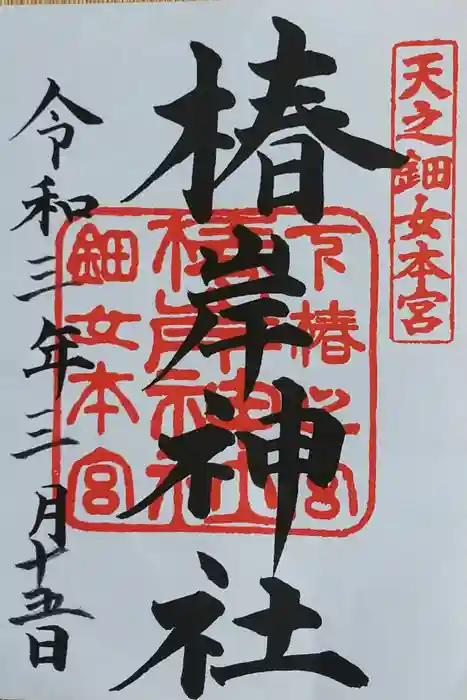 天之鈿女本宮
椿岸神社
下椿
椿岸神社
鈿女本宮
令和三年三月十五日